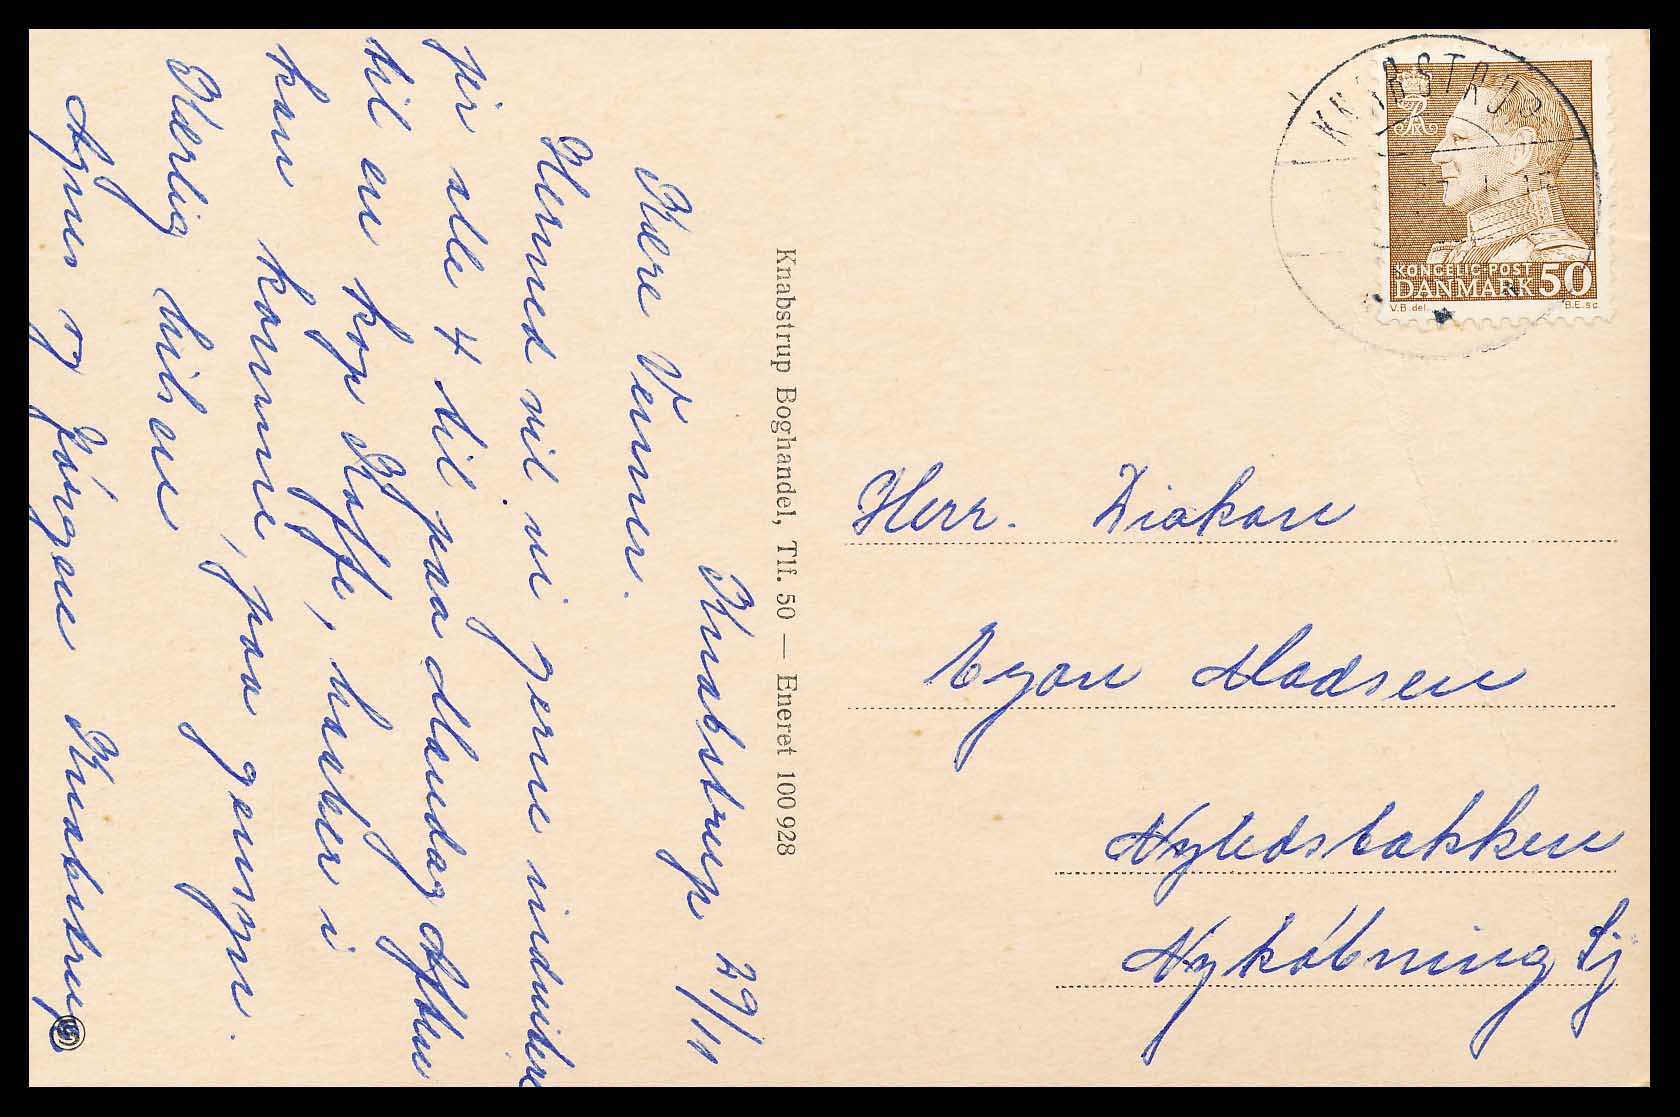 Knabstrup 29/11
Kære Venner.
Hermed vil vi gerne indvidere
jer alle 4 til paa Mandag Aften
til en kop Kaffe, haaber i
kan komme, paa gensyn.
Kærlig hilsen
Agnes og Jørgen Knabstrup
Knabstrup Boghandel, Tlf. 50 — Eneret 100 928
KNABSTRUP
KONGELIG POST
DANMARK 50
V.B. del. B.E. sc
Herr. Diakon
Egon Madsen
Nyledsbakken
Nykøbning Sj